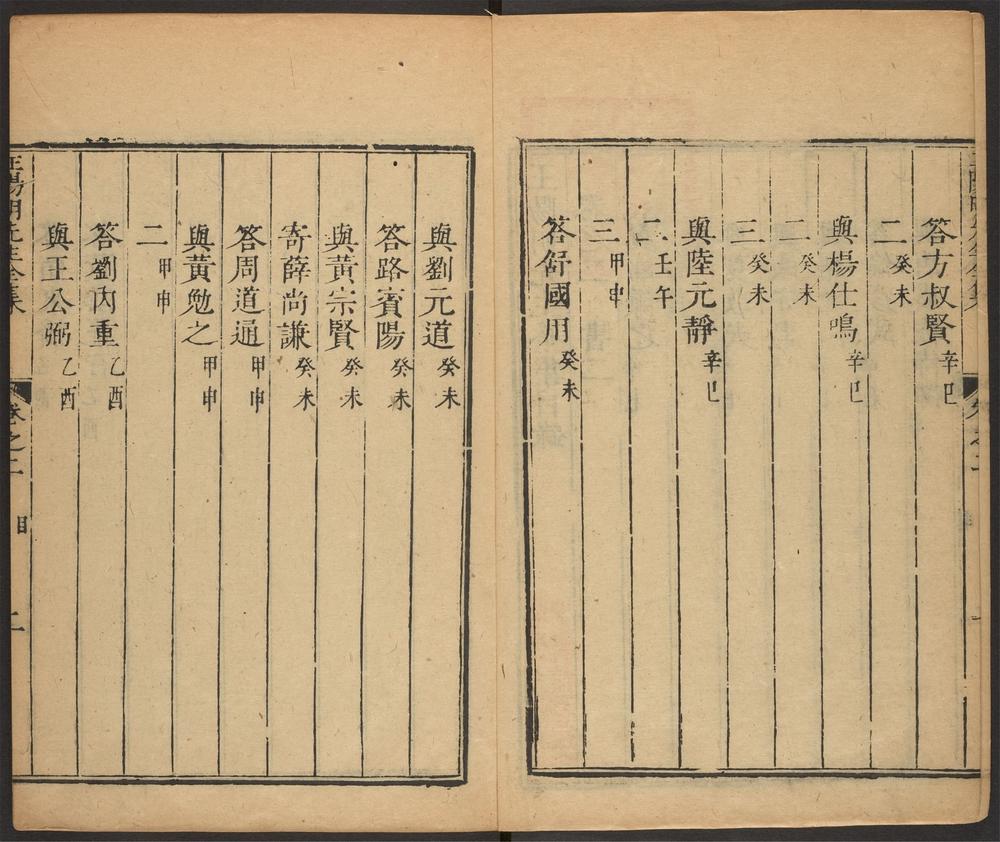 答方叔賢辛巳
二癸未
與楊仕鳴辛巳
二癸未
三癸未
與陸元靜辛巳
二壬午
三甲申
答舒國用癸未
與劉元道癸未
答路賓陽癸未
與黃宗賢癸未
寄薛尚謙癸未
答周道通甲申
與黃勉之甲申
二甲申
答劉內重乙酉
與王公弼乙酉
王陽明先生全集 卷之二 目 二